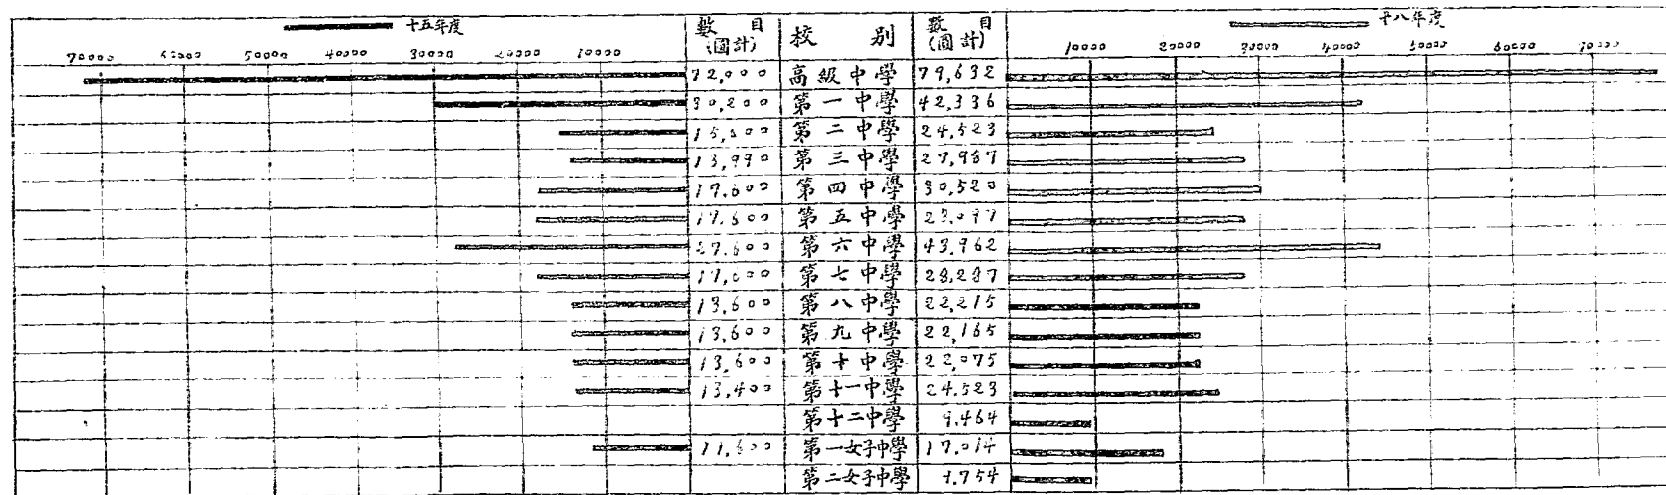 十五年度 數目 校別 數目 十八年度
(圓計) (圓計)
70000 60000 50000 40000 30000 20000 10000 10000 20000 30000 40000 50000 60000 70000
72,000 高級中學 79,632
30,200 第一中學 42,336
第二中學 24,523
13,990 第三中學 27,987
17,600 第四中學 30,520
17,600 第五中學
27,600 第六中學 43,962
17,600 第七中學 28,287
13,600 第八中學 22,215
13,600 第九中學 22,165
13,600 第十中學 22,075
13,400 第十一中學 24,523
第十二中學 9,464
11,600 第一女子中學 17,014
第二女子中學